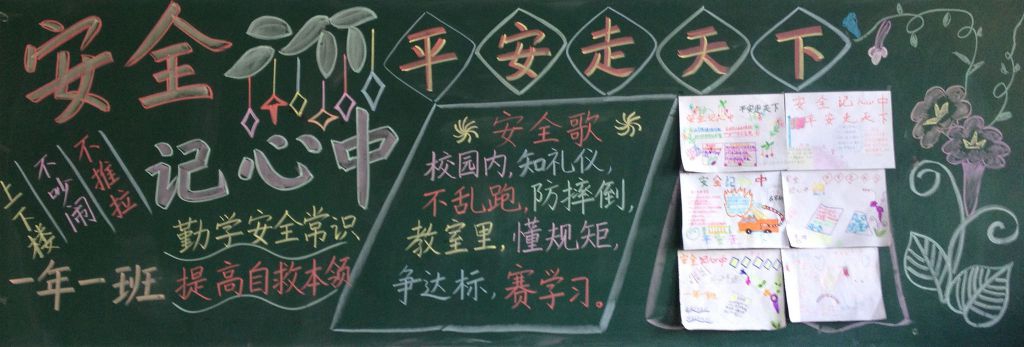 安全
记心中
平安走天下
上下楼
不吵闹
不推拉
勤学安全常识
提高自救本领
一年一班
安全歌
校园内,知礼仪,
不乱跑,防摔倒,
教室里,懂规矩,
争达标,赛学习。
平安走天下
安全记心中
平安走天下
安全记 中
安全记心中
一年一班